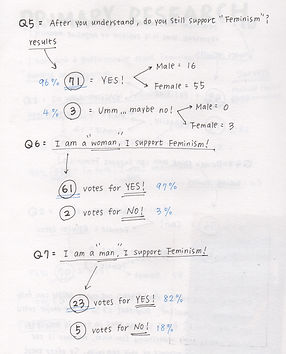 Q5 = After you understand, do you still support "Feminism"?
results
96% 71 = YES! Male = 16
Female = 55
4% 3 = Umm... maybe no! Male = 0
Female = 3
Q6 = I am a "woman", I support Feminism!
61 votes for YES! 97%
2 votes for NO! 3%
Q7 = I am a "man", I support Feminism!
23 votes for YES! 82%
5 votes for NO! 18%